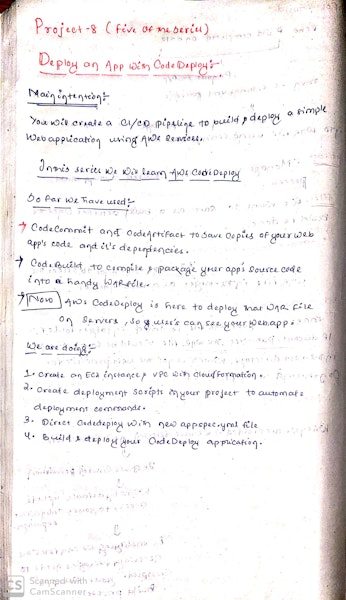 Project-8 (five of the series)
Deploy an App with CodeDeploy:-
Main intention:-
You will create a CI/CD pipeline to build & deploy a simple
Web application using AWS Services.
In this series we will learn AWS CodeDeploy
So far we have used:-
→ CodeCommit and CodeArtifact to save copies of your web
app's code and it's dependencies.
→ CodeBuild to compile & package your app's source code
into a handy WAR file.
→ Now AWS CodeDeploy is here to deploy that WAR file
on servers, so users can see your webapp.
We are doing:-
1. Create an EC2 instance & VPC with CloudFormation.
2. Create deployment scripts in your project to automate
deployment commands.
3. Direct Codedeploy with new appspec.yml file
4. Build & deploy your CodeDeploy application.
CS Scanned with
CamScanner